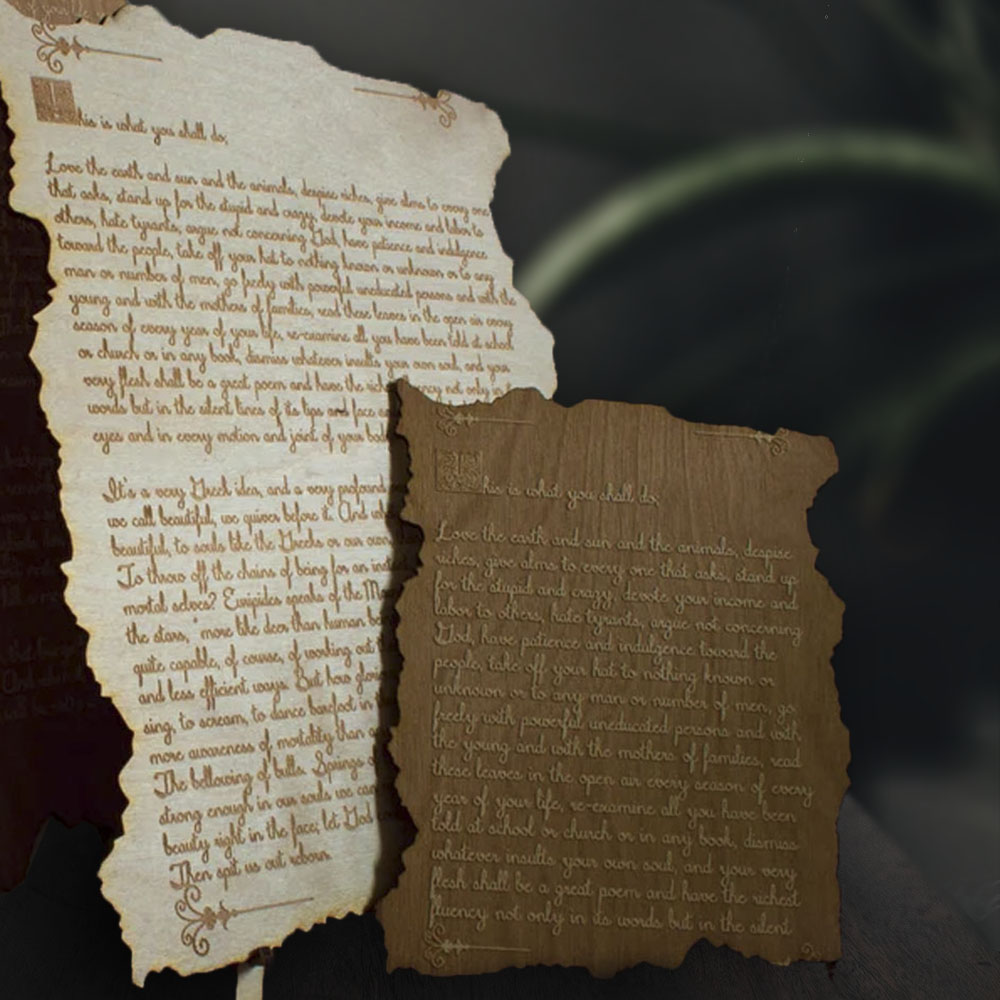 This is what you shall do;
Love the earth and sun and the animals, despise riches, give alms to every one
that asks, stand up for the stupid and crazy, devote your income and labor to
others, hate tyrants, argue not concerning God, have patience and indulgence
toward the people, take off your hat to nothing known or unknown or to any
man or number of men, go freely with powerful uneducated persons and with the
young and with the mothers of families, read these leaves in the open air every
season of every year of your life, re-examine all you have been told at school
or church or in any book, dismiss whatever insults your own soul, and your
very flesh shall be a great poem and have the rich ency not only in it
words but in the silent lines of its lips and face an
eyes and in every motion and joint of your bod
It's a very Greek idea, and a very profoun
we call beautiful, we quiver before it. And wh
beautiful, to souls like the Greeks or our own
To throw off the chains of being for an inst
mortal selves? Euripides speaks of the Ma
the stars, "more like deer than human be
quite capable, of course, of working out th
and less efficient ways. But how glorio
sing, to scream, to dance barefoot in
more awareness of mortality than a
The bellowing of bulls. Springs o
strong enough in our souls we can
beauty right in the face; let God
Then spit us out reborn.
This is what you shall do;
Love the earth and sun and the animals, despise
riches, give alms to every one that asks, stand up
for the stupid and crazy, devote your income and
labor to others, hate tyrants, argue not concerning
God, have patience and indulgence toward the
people, take off your hat to nothing known or
unknown or to any man or number of men, go
freely with powerful uneducated persons and with
the young and with the mothers of families, read
these leaves in the open air every season of every
year of your life, re-examine all you have been
told at school or church or in any book, dismiss
whatever insults your own soul, and your very
flesh shall be a great poem and have the richest
fluency not only in its words but in the silent